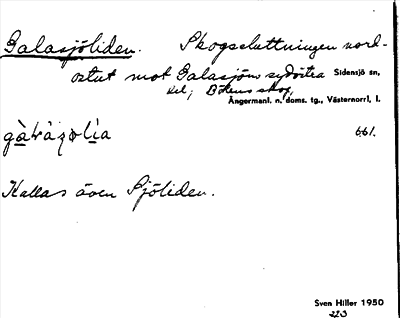 Galasjöliden. Skogssluttningen nord-
ostut mot Galasjöns sydöstra Sidensjö sn,
del; Bökens skog,
Ångermanl. n. doms. tg., Västernorrl. l.
661.
Kallas även Sjöliden.
Sven Hiller 1950
223